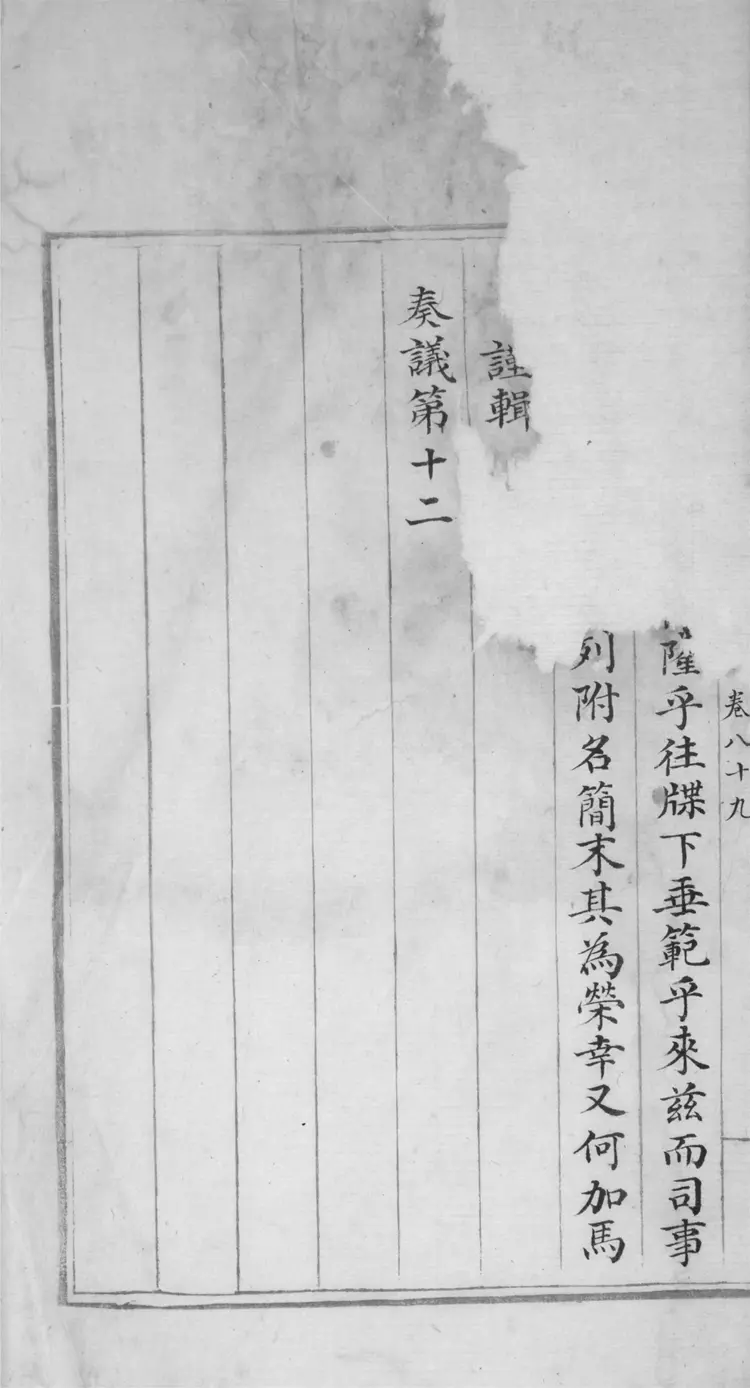 卷八十九
隆乎往牒下垂範乎來茲而司事
列附名簡末其為榮幸又何加焉
謹輯
奏議第十二